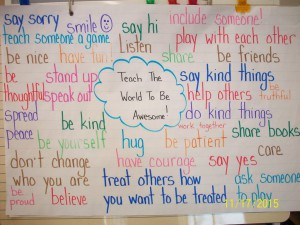 say sorry
smile
say hi
include someone!
teach someone a game
Listen
play with each other
be nice
have fun!
share
be friends
be thoughtful
stand up
speak out
Teach The
World To Be
Awesome!
say kind things
help others
be truthful
spread peace
be kind
do kind things
work together
share books
be yourself
hug
be patient
care
don't change
who you are
have courage
say yes
treat others how
you want to be treated
ask someone
to play
be proud
believe
11/17/2015